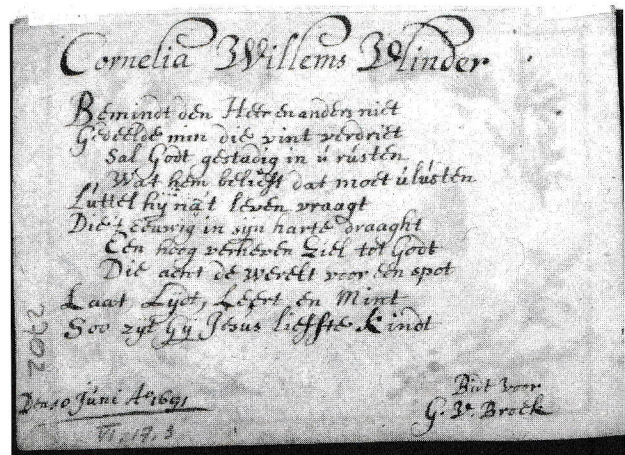 Cornelia Willems Vlinder
Bemindt den Heer en anders niet
Gedeelde min die vint verdriet
Sal Godt gestadig in ú rústen
Wat hem belieft dat moet ú lústen
Lúttel hij na't leven vraagt
Die't eeuwig in syn harte draaght
Een hoog verheven Ziel tot Godt
Die acht de werelt voor een spot
Laat, Lydt, Leert en Mint
Soo zyt gij Jesús liefste Kindt
Den 10 Júni Ao 1691
Bidt voor
G. V. Broek
VI. 17. 3
2702